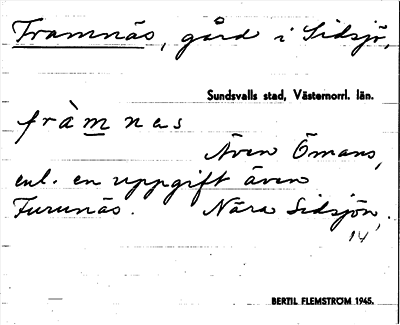 Framnäs, gård i Sidsjö,
Sundsvalls stad, Västernorrl. län.
fràmnas
Även Ömans,
enl. en uppgift även
Furunäs. Nära Sidsjön,
14
BERTIL FLEMSTRÖM 1945.